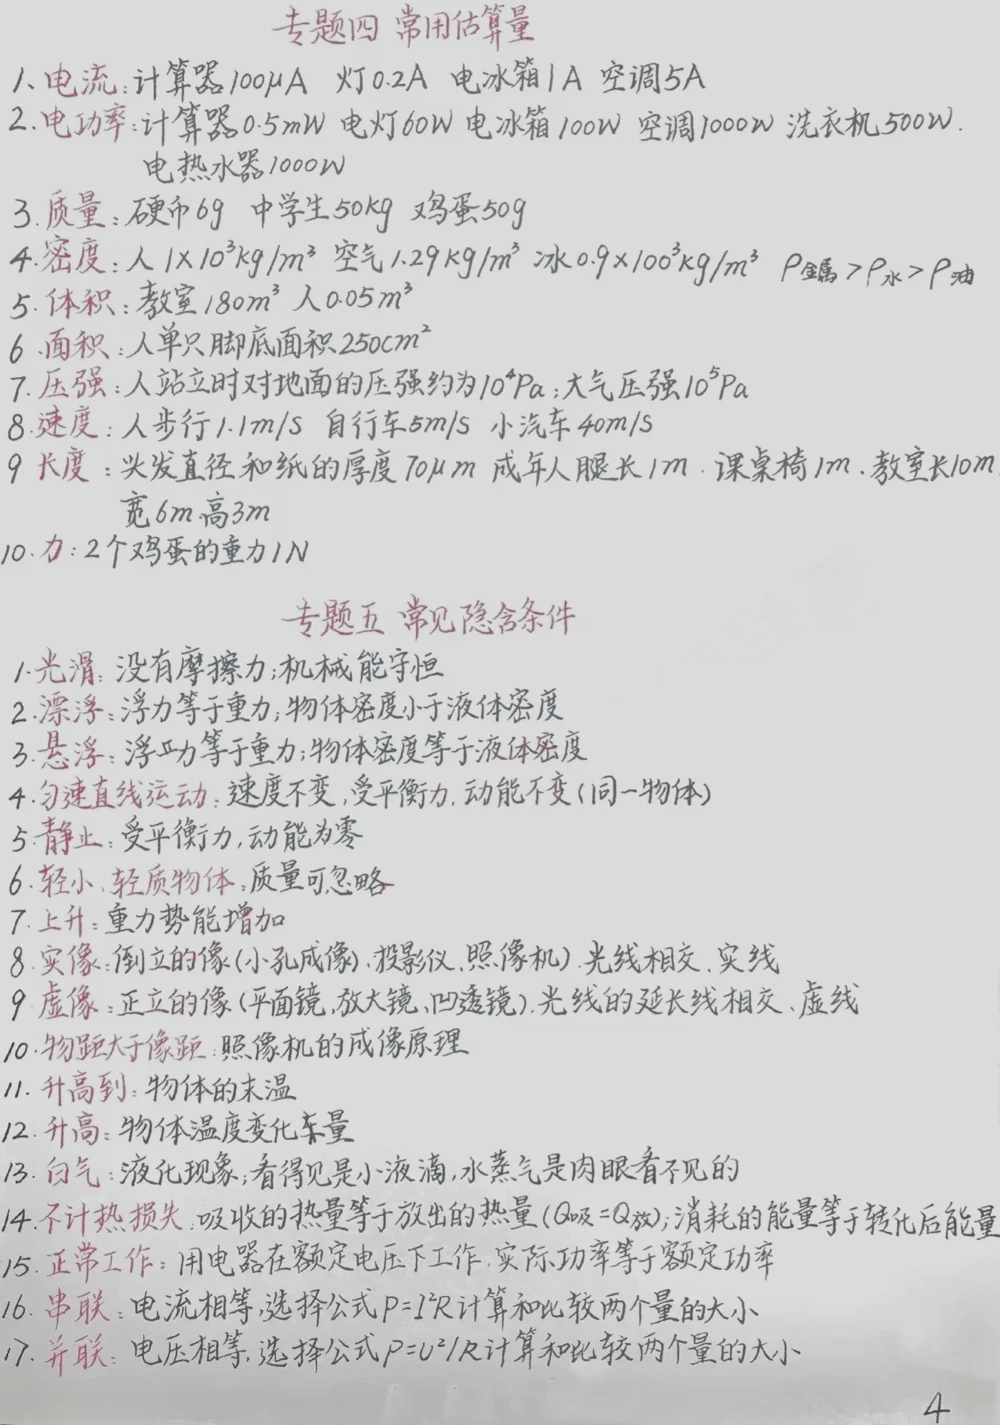 专题四 常用估算量
1、电流:计算器100μA 灯0.2A 电冰箱1A 空调5A
2.电功率:计算器0.5mW 电灯60W 电冰箱100W 空调1000W 洗衣机500W.
电热水器1000W
3.质量:硬币6g 中学生50kg 鸡蛋50g
4.密度:人1×10³kg/m³ 空气1.29kg/m³ 冰0.9×100³kg/m³ ρ金属>ρ水>ρ油
5.体积:教室180m³ 人0.05m³
6.面积:人单只脚底面积250cm²
7.压强:人站立时对地面的压强约为10⁴Pa;大气压强10⁵Pa
8.速度:人步行1.1m/s 自行车5m/s 小汽车40m/s
9 长度:头发直径和纸的厚度70μm 成年人腿长1m.课桌椅1m.教室长10m
宽6m.高3m
10.力:2个鸡蛋的重力1N
专题五 常见隐含条件
1.光滑:没有摩擦力;机械能守恒
2.漂浮:浮力等于重力;物体密度小于液体密度
3.悬浮:浮力等于重力;物体密度等于液体密度
4.匀速直线运动:速度不变,受平衡力,动能不变(同一物体)
5.静止:受平衡力,动能为零
6.轻小、轻质物体:质量可忽略
7.上升:重力势能增加
8.实像:倒立的像(小孔成像)、投影仪、照像机).光线相交、实线
9.虚像:正立的像(平面镜,放大镜,凹透镜).光线的延长线相交、虚线
10.物距大于像距:照像机的成像原理
11.升高到:物体的末温
12.升高:物体温度变化量
13.白气:液化现象;看得见是小液滴,水蒸气是肉眼看不见的
14.不计热损失:吸收的热量等于放出的热量(Q吸=Q放);消耗的能量等于转化后能量
15.正常工作:用电器在额定电压下工作.实际功率等于额定功率
16.串联:电流相等,选择公式P=I²R计算和比较两个量的大小
17.并联:电压相等,选择公式P=U²/R计算和比较两个量的大小
4